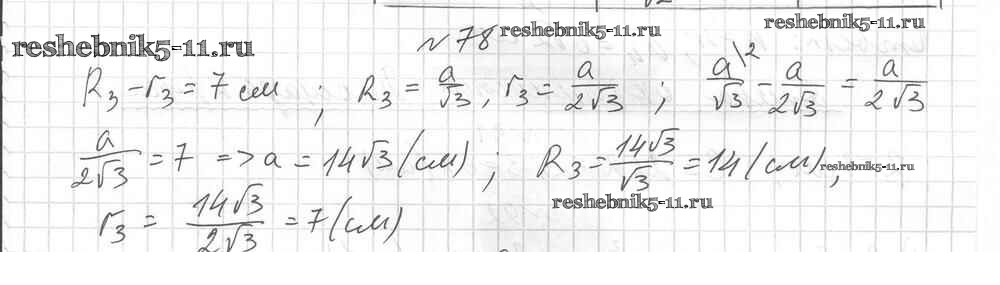 reshebnik5-11.ru №78 reshebnik5-11.ru reshebnik5-11.ru
R₃ - r₃ = 7 см ; R₃ = a/√3 , r₃ = a/2√3 ; a\²/√3 - a/2√3 = a/2√3
a/2√3 = 7 => a = 14√3 (см) ; R₃ = 14√3/√3 = 14 (см) , reshebnik5-11.ru
reshebnik5-11.ru
r₃ = 14√3/2√3 = 7 (см)